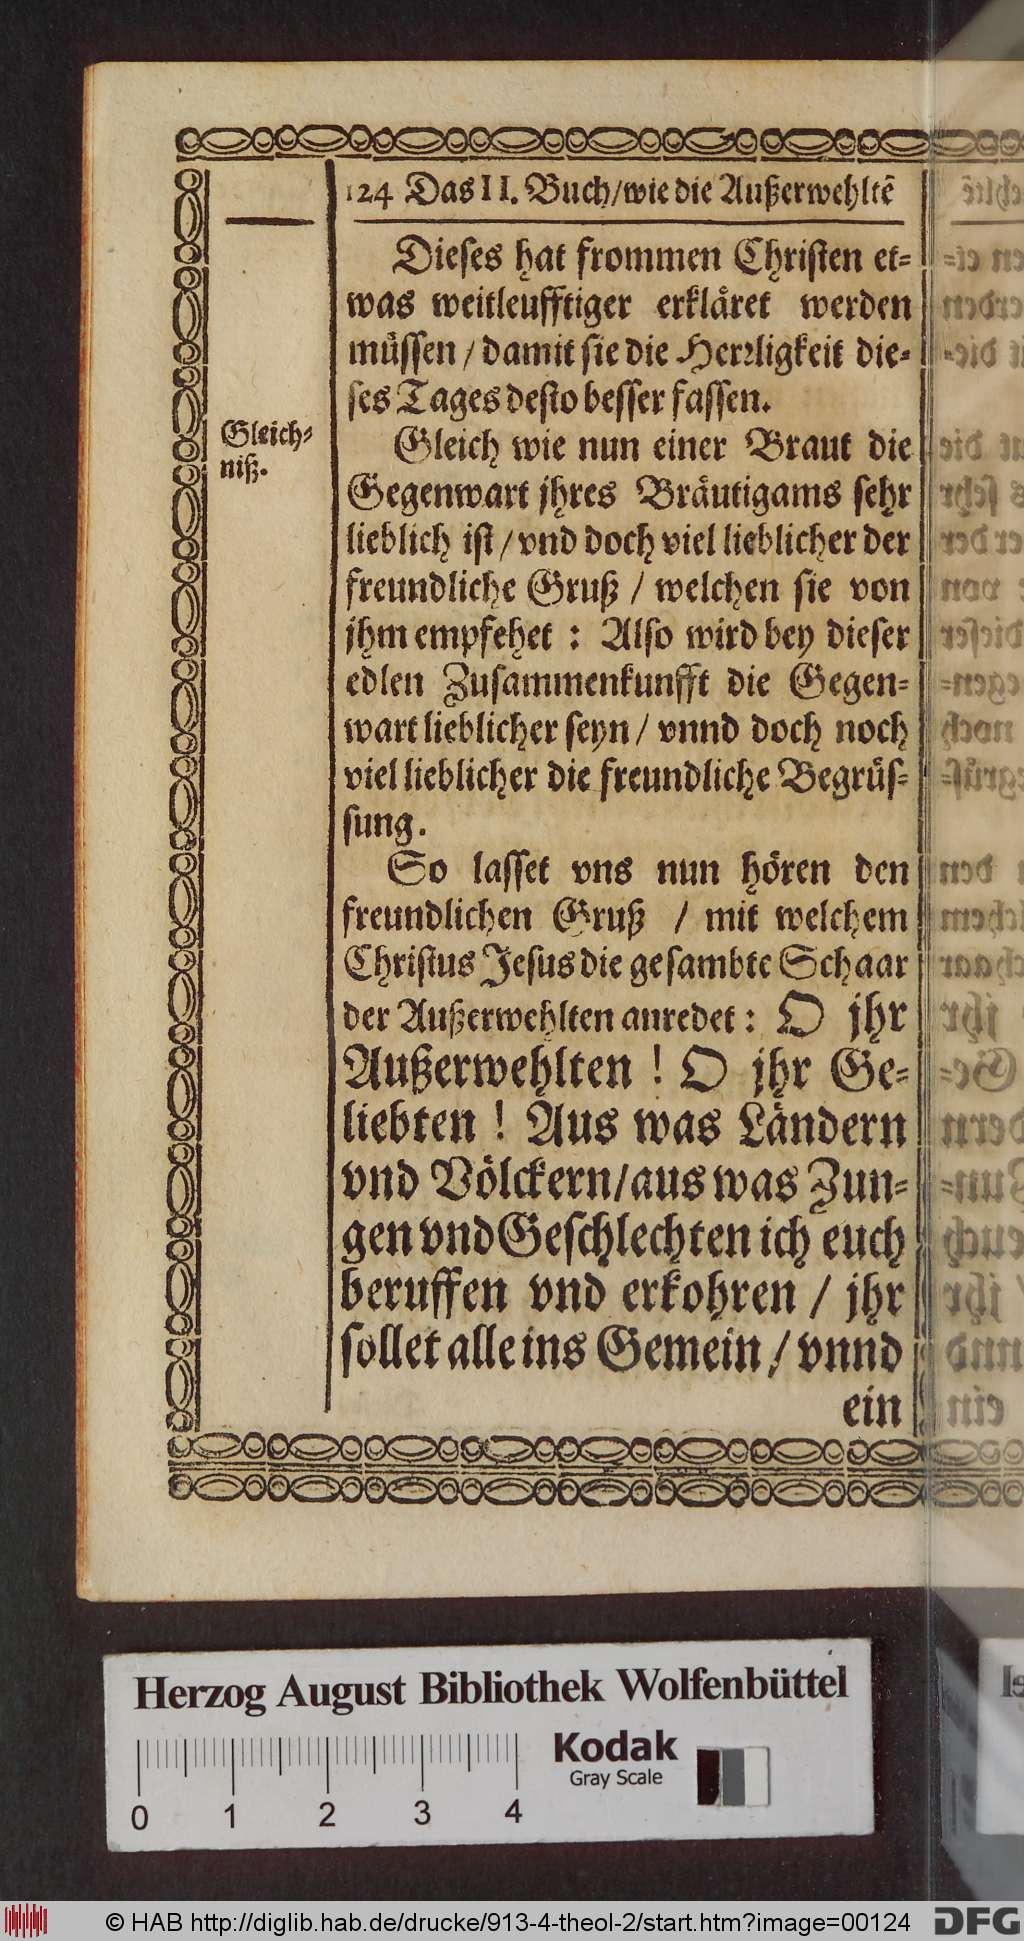 124 Das II. Buch/wie die Außerwehltē
Dieses hat frommen Christen et-
was weitleufftiger erkläret werden
müssen / damit sie die Herrligkeit die-
ses Tages desto besser fassen.
Gleich-
niß.
Gleich wie nun einer Braut die
Gegenwart jhres Bräutigams sehr
lieblich ist / vnd doch viel lieblicher der
freundliche Gruß / welchen sie von
jhm empfehet : Also wird bey dieser
edlen Zusammenkunfft die Gegen-
wart lieblicher seyn / vnnd doch noch
viel lieblicher die freundliche Begrüs-
sung.
So lasset vns nun hören den
freundlichen Gruß / mit welchem
Christus Jesus die gesambte Schaar
der Außerwehlten anredet : O jhr
Außerwehlten ! O jhr Ge-
liebten ! Aus was Ländern
vnd Völckern/aus was Zun-
gen vnd Geschlechten ich euch
beruffen vnd erkohren / jhr
sollet alle ins Gemein / vnnd
ein
Herzog August Bibliothek Wolfenbüttel
Kodak
Gray Scale
0 1 2 3 4
© HAB http://diglib.hab.de/drucke/913-4-theol-2/start.htm?image=00124
DFG